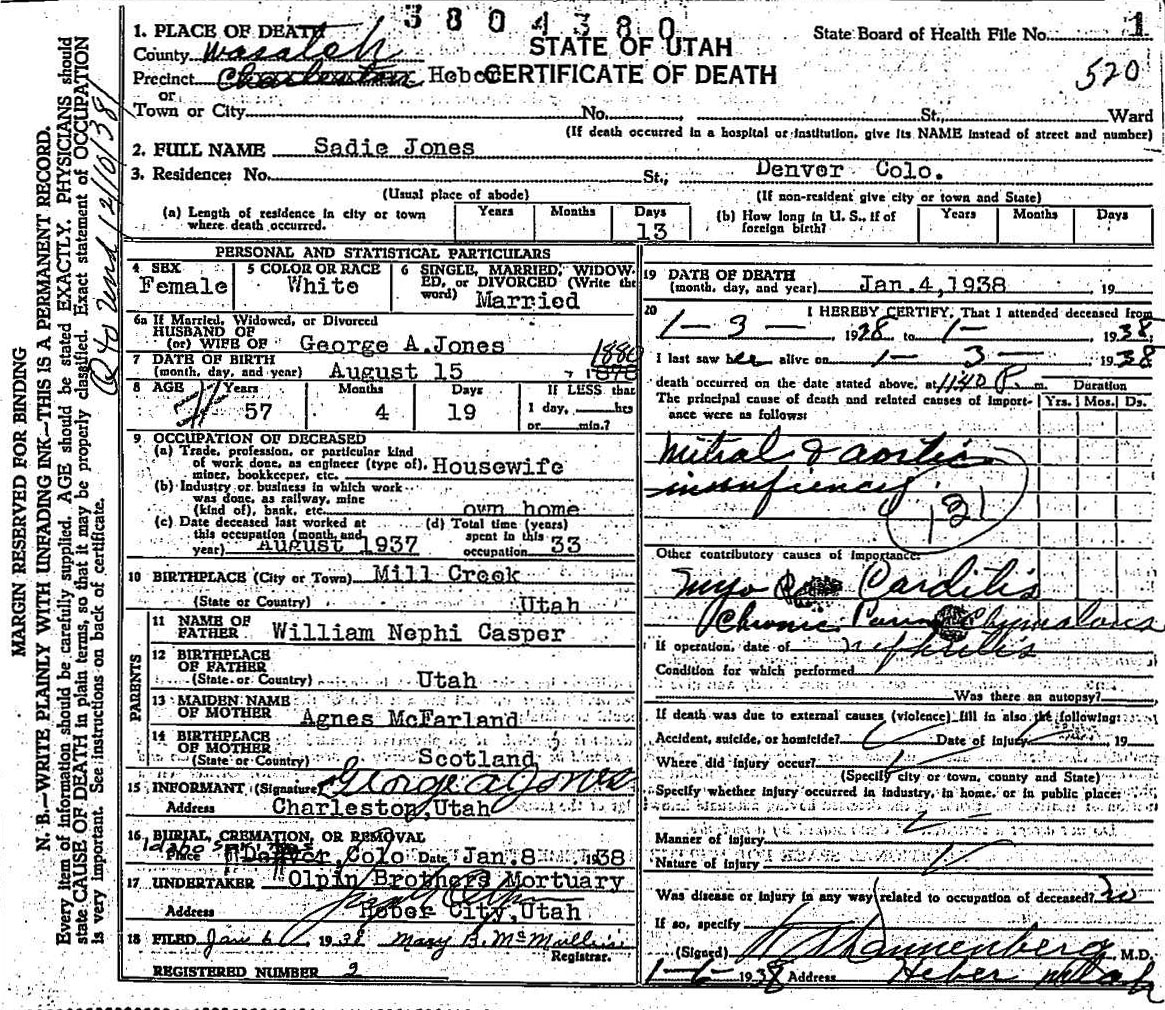 3804380
1. PLACE OF DEATH
STATE OF UTAH
CERTIFICATE OF DEATH
State Board of Health File No. 1
520
County Wasatch
Precinct Charleston Heber
or
Town or City No. St., Ward
(If death occurred in a hospital or institution, give its NAME instead of street and number)
2. FULL NAME Sadie Jones
3. Residence: No. St., Denver Colo.
(Usual place of abode) (If non-resident give city or town and State)
(a) Length of residence in city or town where death occurred. Years Months Days 13
(b) How long in U. S., if of foreign birth? Years Months Days
PERSONAL AND STATISTICAL PARTICULARS
4 SEX Female
5 COLOR OR RACE White
6 SINGLE, MARRIED, WIDOW-
ED, or DIVORCED (Write the
word) Married
6a If Married, Widowed, or Divorced
HUSBAND OF
(or) WIFE OF George A.Jones
7 DATE OF BIRTH
(month, day, and year) August 15, 1878 1880
8 AGE Years 57 Months 4 Days 19
If LESS than
1 day, hrs
or min.?
9 OCCUPATION OF DECEASED
(a) Trade, profession, or particular kind
of work done, as engineer (type of), Housewife
miner, bookkeeper, etc.
(b) Industry or business in which work
was done, as railway, mine
(kind of), bank, etc. own home
(c) Date deceased last worked at
this occupation (month and
year) August 1937
(d) Total time (years)
spent in this
occupation 33
10 BIRTHPLACE (City or Town) Mill Creek
(State or Country) Utah
PARENTS
11 NAME OF
FATHER William Nephi Casper
12 BIRTHPLACE
OF FATHER
(State or Country) Utah
13 MAIDEN NAME
OF MOTHER Agnes McFarland
14 BIRTHPLACE
OF MOTHER
(State or Country) Scotland
15 INFORMANT (Signature) George A Jones
Address Charleston, Utah
16 BURIAL, CREMATION, OR REMOVAL
Idaho Springs
Place Denver, Colo Date Jan. 8 1938
17 UNDERTAKER Olpin Brothers Mortuary
Address Heber City, Utah
18 FILED Jan 6, 1938 Mary B. McMullin
Registrar.
REGISTERED NUMBER 2
19 DATE OF DEATH
(month, day, and year) Jan.4,1938 19
20 I HEREBY CERTIFY, That I attended deceased from
1-3- 1938 to 1- 1938,
I last saw her alive on 1-3- 1938
death occurred on the date stated above, at 1140 P. m.
Duration
The principal cause of death and related causes of import-
ance were as follows:
Yrs. Mos. Ds.
Mitral & aortic
insuficiency
Other contributory causes of importance:
Myo Carditis
Chronic
nephritis
If operation, date of
Condition for which performed
Was there an autopsy?
If death was due to external causes (violence) fill in also the following:
Accident, suicide, or homicide? Date of injury 19
Where did injury occur?
(Specify city or town, county and State)
Specify whether injury occurred in industry, in home, or in public place:
Manner of injury
Nature of injury
Was disease or injury in any way related to occupation of deceased? no
If so, specify
(Signed) Dannenberg, M.D.
1-6- 1938 Address Heber Utah
MARGIN RESERVED FOR BINDING
N. B.—WRITE PLAINLY WITH UNFADING INK—THIS IS A PERMANENT RECORD.
Every item of information should be carefully supplied. AGE should be stated EXACTLY. PHYSICIANS should
state CAUSE OF DEATH in plain terms, so that it may be properly classified. Exact statement of OCCUPATION
is very important. See instructions on back of certificate.
12/10/38